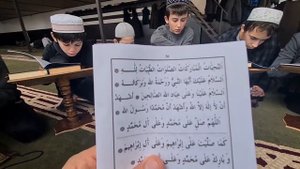 التَّحِيَّاتُ الْمُبَارَكَاتُ الصَّلَوَاتُ الطَّيِّبَاتُ لِلَّهِ
السَّلَامُ عَلَيْكَ أَيُّهَا النَّبِيُّ وَرَحْمَةُ اللهِ وَبَرَكَاتُهُ *
السَّلَامُ عَلَيْنَا وَعَلَى عِبَادِ اللهِ الصَّالِحِينَ * أَشْهَدُ
أَنْ لَا إِلَهَ إِلَّا اللهُ وَأَشْهَدُ أَنَّ مُحَمَّدًا رَسُولُ اللهِ
اللَّهُمَّ صَلِّ عَلَى مُحَمَّدٍ وَعَلَى آلِ مُحَمَّدٍ *
كَمَا صَلَّيْتَ عَلَى إِبْرَاهِيمَ وَعَلَى آلِ إِبْرَاهِيمَ *
وَبَارِكْ عَلَى مُحَمَّدٍ وَعَلَى مُحَمَّدٍ *